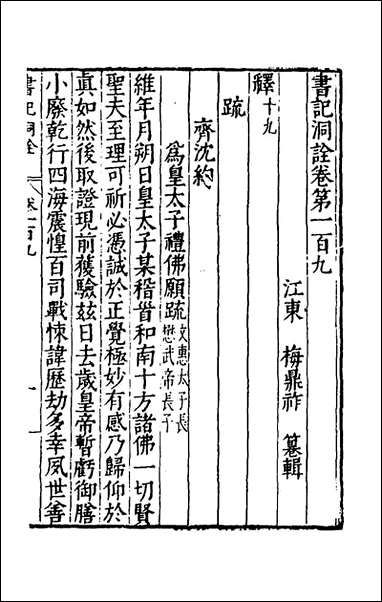 書記洞詮卷第一百九
江東 梅鼎祚 纂輯
釋十九
疏
齊沈約
為皇太子禮佛願疏文惠太子長
懋武帝長子
維年月朔日皇太子某稽首和南十方諸佛一切賢
聖夫至理可祈必憑誠於正覺極妙有感乃歸仰於
真如然後取證現前獲驗茲日去歲皇帝暫虧御膳
小廢乾行四海震惶百司戰悚諱歷劫多幸夙世善
書記洞詮 卷一百九 一